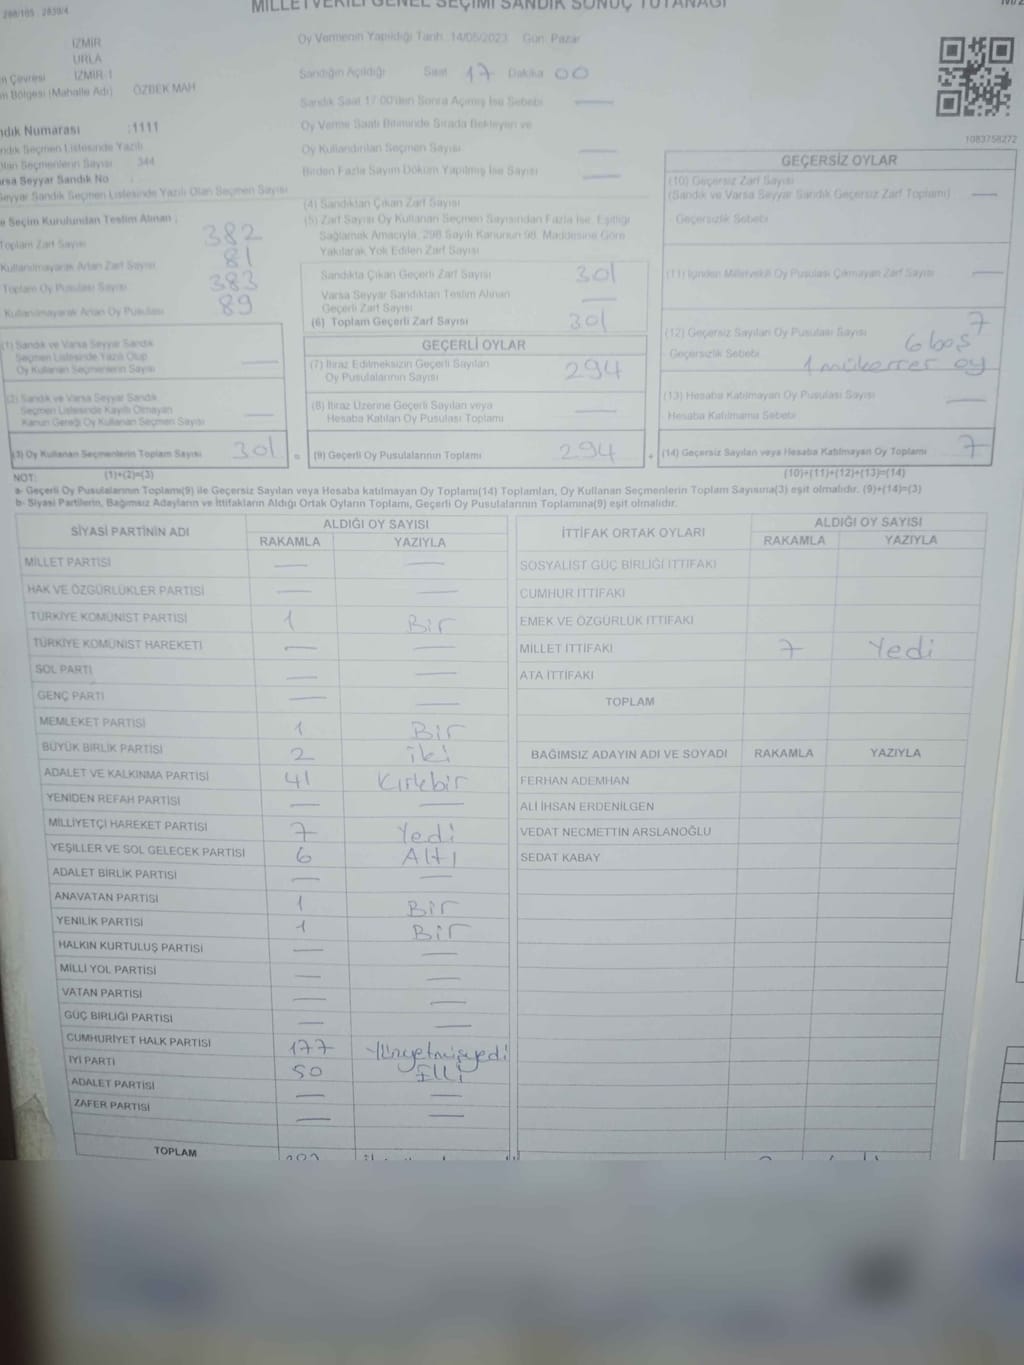 288/105 : 2839/4
MİLLETVEKİLİ GENEL SEÇİMİ SANDIK SONUÇ TUTANAĞI
İZMİR
URLA
n Çevresi İZMİR-1
m Bölgesi (Mahalle Adı) ÖZBEK MAH
ndık Numarası :1111
ndık Seçmen Listesinde Yazılı
olan Seçmenlerin Sayısı 344
arsa Seyyar Sandık No :
Seyyar Sandık Seçmen Listesinde Yazılı Olan Seçmen Sayısı
e Seçim Kurulundan Teslim Alınan ;
Toplam Zarf Sayısı 382
Kullanılmayarak Artan Zarf Sayısı 81
Toplam Oy Pusulası Sayısı 383
Kullanılmayarak Artan Oy Pusulası 89
(1) Sandık ve Varsa Seyyar Sandık
Seçmen Listesinde Yazılı Olup
Oy Kullanan Seçmenlerin Sayısı —
(2) Sandık ve Varsa Seyyar Sandık
Seçmen Listesinde Kayıtlı Olmayan
Kanun Gereği Oy Kullanan Seçmen Sayısı —
(3) Oy Kullanan Seçmenlerin Toplam Sayısı 301 =
Oy Vermenin Yapıldığı Tarih :14/05/2023 Gün: Pazar
Sandığın Açıldığı Saat 17 Dakika 00
Sandık Saat 17:00'den Sonra Açılmış İse Sebebi —
Oy Verme Saati Bitiminde Sırada Bekleyen ve
Oy Kullandırılan Seçmen Sayısı —
Birden Fazla Sayım Döküm Yapılmış İse Sayısı —
(4) Sandıktan Çıkan Zarf Sayısı
(5) Zarf Sayısı Oy Kullanan Seçmen Sayısından Fazla İse, Eşitliği
Sağlamak Amacıyla, 298 Sayılı Kanunun 98. Maddesine Göre
Yakılarak Yok Edilen Zarf Sayısı
Sandıkta Çıkan Geçerli Zarf Sayısı 301
Varsa Seyyar Sandıktan Teslim Alınan
Geçerli Zarf Sayısı —
(6) Toplam Geçerli Zarf Sayısı 301
GEÇERLİ OYLAR
(7) İtiraz Edilmeksizin Geçerli Sayılan
Oy Pusulalarının Sayısı 294
(8) İtiraz Üzerine Geçerli Sayılan veya
Hesaba Katılan Oy Pusulası Toplamı —
(9) Geçerli Oy Pusulalarının Toplamı 294 +
1083758272
GEÇERSİZ OYLAR
(10) Geçersiz Zarf Sayısı
(Sandık ve Varsa Seyyar Sandık Geçersiz Zarf Toplamı) —
Geçersizlik Sebebi
(11) İçinden Milletvekili Oy Pusulası Çıkmayan Zarf Sayısı —
(12) Geçersiz Sayılan Oy Pusulası Sayısı 7
Geçersizlik Sebebi 6 boş
1 mükerrer oy
(13) Hesaba Katılmayan Oy Pusulası Sayısı —
Hesaba Katılmama Sebebi
(14) Geçersiz Sayılan veya Hesaba Katılmayan Oy Toplamı 7
NOT: (1)+(2)=(3) (10)+(11)+(12)+(13)=(14)
a- Geçerli Oy Pusulalarının Toplamı(9) ile Geçersiz Sayılan veya Hesaba katılmayan Oy Toplamı(14) Toplamları, Oy Kullanan Seçmenlerin Toplam Sayısına(3) eşit olmalıdır. (9)+(14)=(3)
b- Siyasi Partilerin, Bağımsız Adayların ve İttifakların Aldığı Ortak Oyların Toplamı, Geçerli Oy Pusulalarının Toplamına(9) eşit olmalıdır.
SİYASİ PARTİNİN ADI ALDIĞI OY SAYISI
RAKAMLA YAZIYLA
MİLLET PARTİSİ — —
HAK VE ÖZGÜRLÜKLER PARTİSİ — —
TÜRKİYE KOMÜNİST PARTİSİ 1 Bir
TÜRKİYE KOMÜNİST HAREKETİ — —
SOL PARTİ — —
GENÇ PARTİ — —
MEMLEKET PARTİSİ 1 Bir
BÜYÜK BİRLİK PARTİSİ 2 iki
ADALET VE KALKINMA PARTİSİ 41 Kırkbir
YENİDEN REFAH PARTİSİ — —
MİLLİYETÇİ HAREKET PARTİSİ 7 Yedi
YEŞİLLER VE SOL GELECEK PARTİSİ 6 Altı
ADALET BİRLİK PARTİSİ — —
ANAVATAN PARTİSİ 1 Bir
YENİLİK PARTİSİ 1 Bir
HALKIN KURTULUŞ PARTİSİ — —
MİLLİ YOL PARTİSİ — —
VATAN PARTİSİ — —
GÜÇ BİRLİĞİ PARTİSİ — —
CUMHURİYET HALK PARTİSİ 177 Yüzyetmişyedi
İYİ PARTİ 50 Elli
ADALET PARTİSİ — —
ZAFER PARTİSİ — —
TOPLAM
İTTİFAK ORTAK OYLARI ALDIĞI OY SAYISI
RAKAMLA YAZIYLA
SOSYALİST GÜÇ BİRLİĞİ İTTİFAKI
CUMHUR İTTİFAKI
EMEK VE ÖZGÜRLÜK İTTİFAKI
MİLLET İTTİFAKI 7 Yedi
ATA İTTİFAKI
TOPLAM
BAĞIMSIZ ADAYIN ADI VE SOYADI RAKAMLA YAZIYLA
FERHAN ADEMHAN
ALİ İHSAN ERDENİLGEN
VEDAT NECMETTİN ARSLANOĞLU
SEDAT KABAY